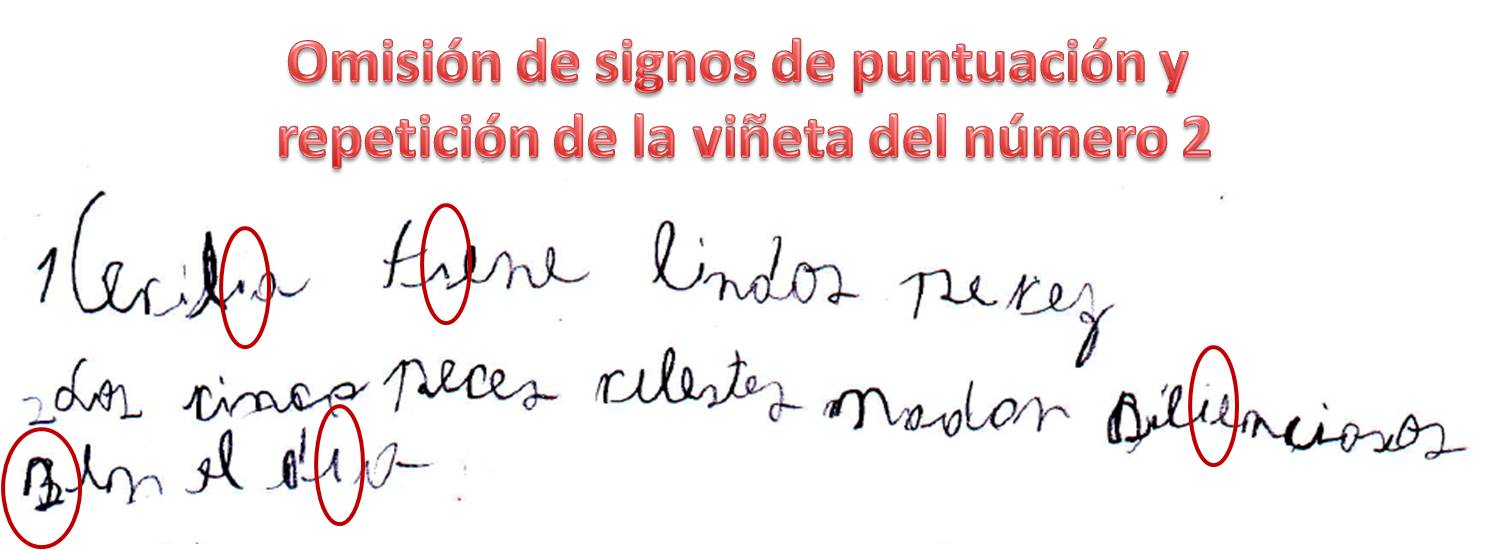 Omisión de signos de puntuación y
repetición de la viñeta del número 2
1 Cecilia tiene lindos peces
2 Los cinco peces celestes nadan silienciosos
En el dia